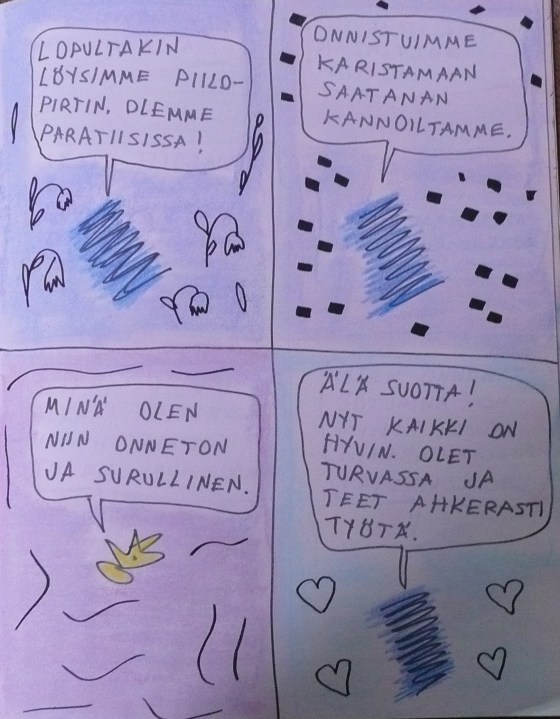 LOPULTAKIN
LÖYSIMME PIILO-
PIRTIN. OLEMME
PARATIISISSA!
ONNISTUIMME
KARISTAMAAN
SAATANAN
KANNOILTAMME.
MINÄ OLEN
NIIN ONNETON
JA SURULLINEN.
ÄLÄ SUOTTA!
NYT KAIKKI ON
HYVIN. OLET
TURVASSA JA
TEET AHKERASTI
TYÖTÄ.